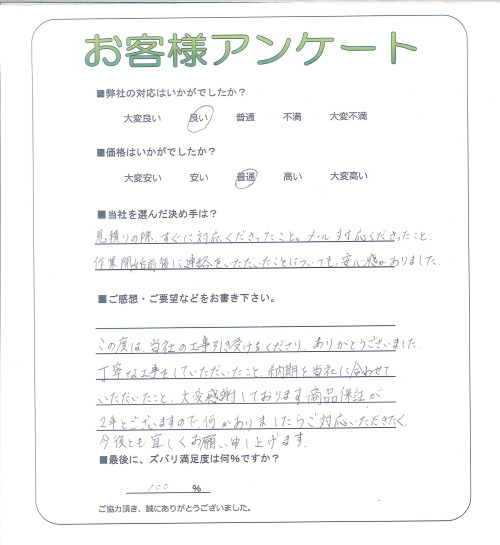 お客様アンケート
■弊社の対応はいかがでしたか?
大変良い 良い 普通 不満 大変不満
■価格はいかがでしたか?
大変安い 安い 普通 高い 大変高い
■当社を選んだ決め手は?
見積りの際、すぐに対応くださったこと。メール対応くださったこと、
作業開始前後に連絡をいただいたことについても、安心感がありました。
■ご感想・ご要望などをお書き下さい。
この度は、当社の工事引き受けをくださり、ありがとうございました。
丁寧な工事をしていただいたこと、納期を当社に合わせて
いただいたこと、大変感謝しております。商品保証が
2年とございますので、何かありましたらご対応いただきたく、
今後とも宜しくお願い申し上げます。
■最後に、ズバリ満足度は何%ですか?
100 %
ご協力頂き、誠にありがとうございました。